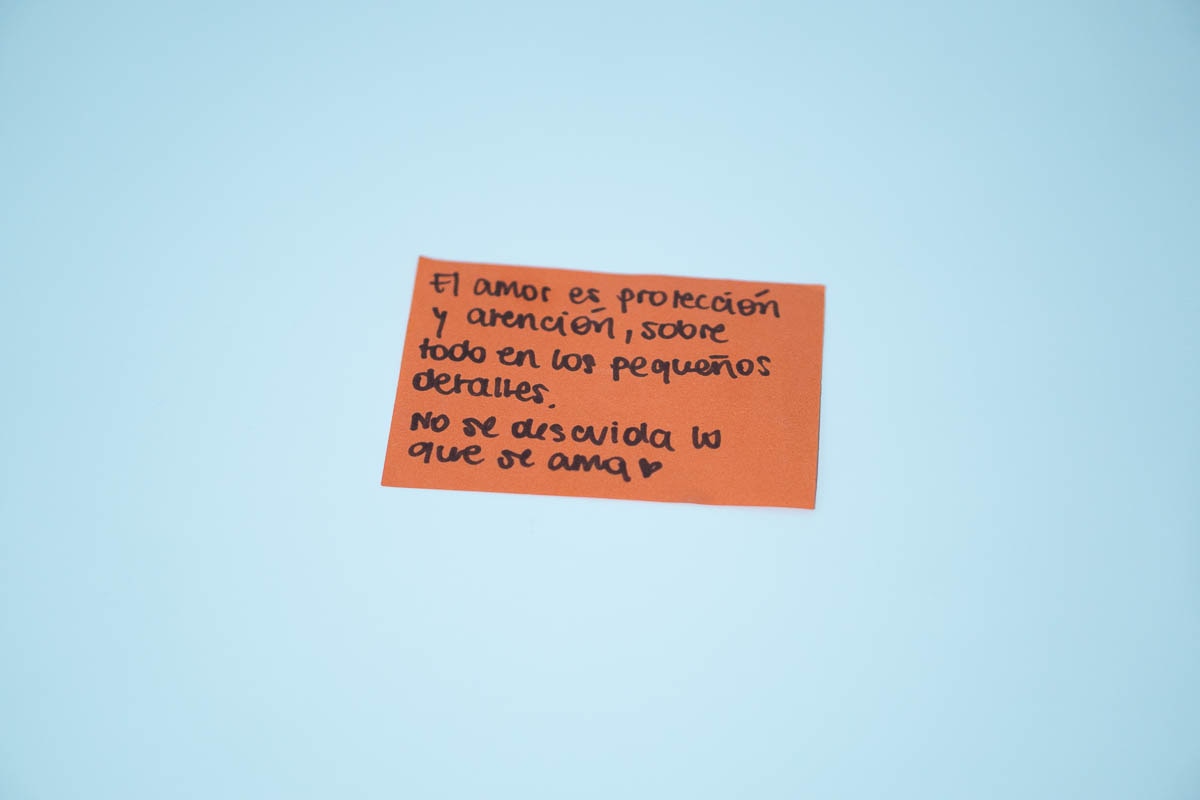 El amor es protección
y atención, sobre
todo en los pequeños
detalles.
No se descuida lo
que se ama ♥